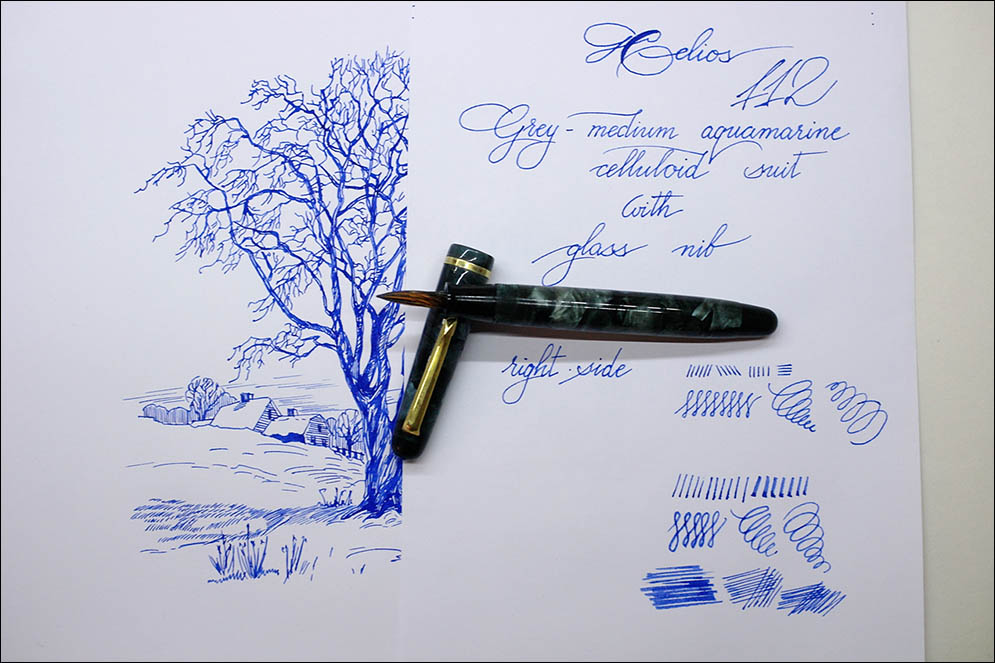 Helios
112
Grey-medium aquamarine
celluloid suit
with
glass nib
right-side